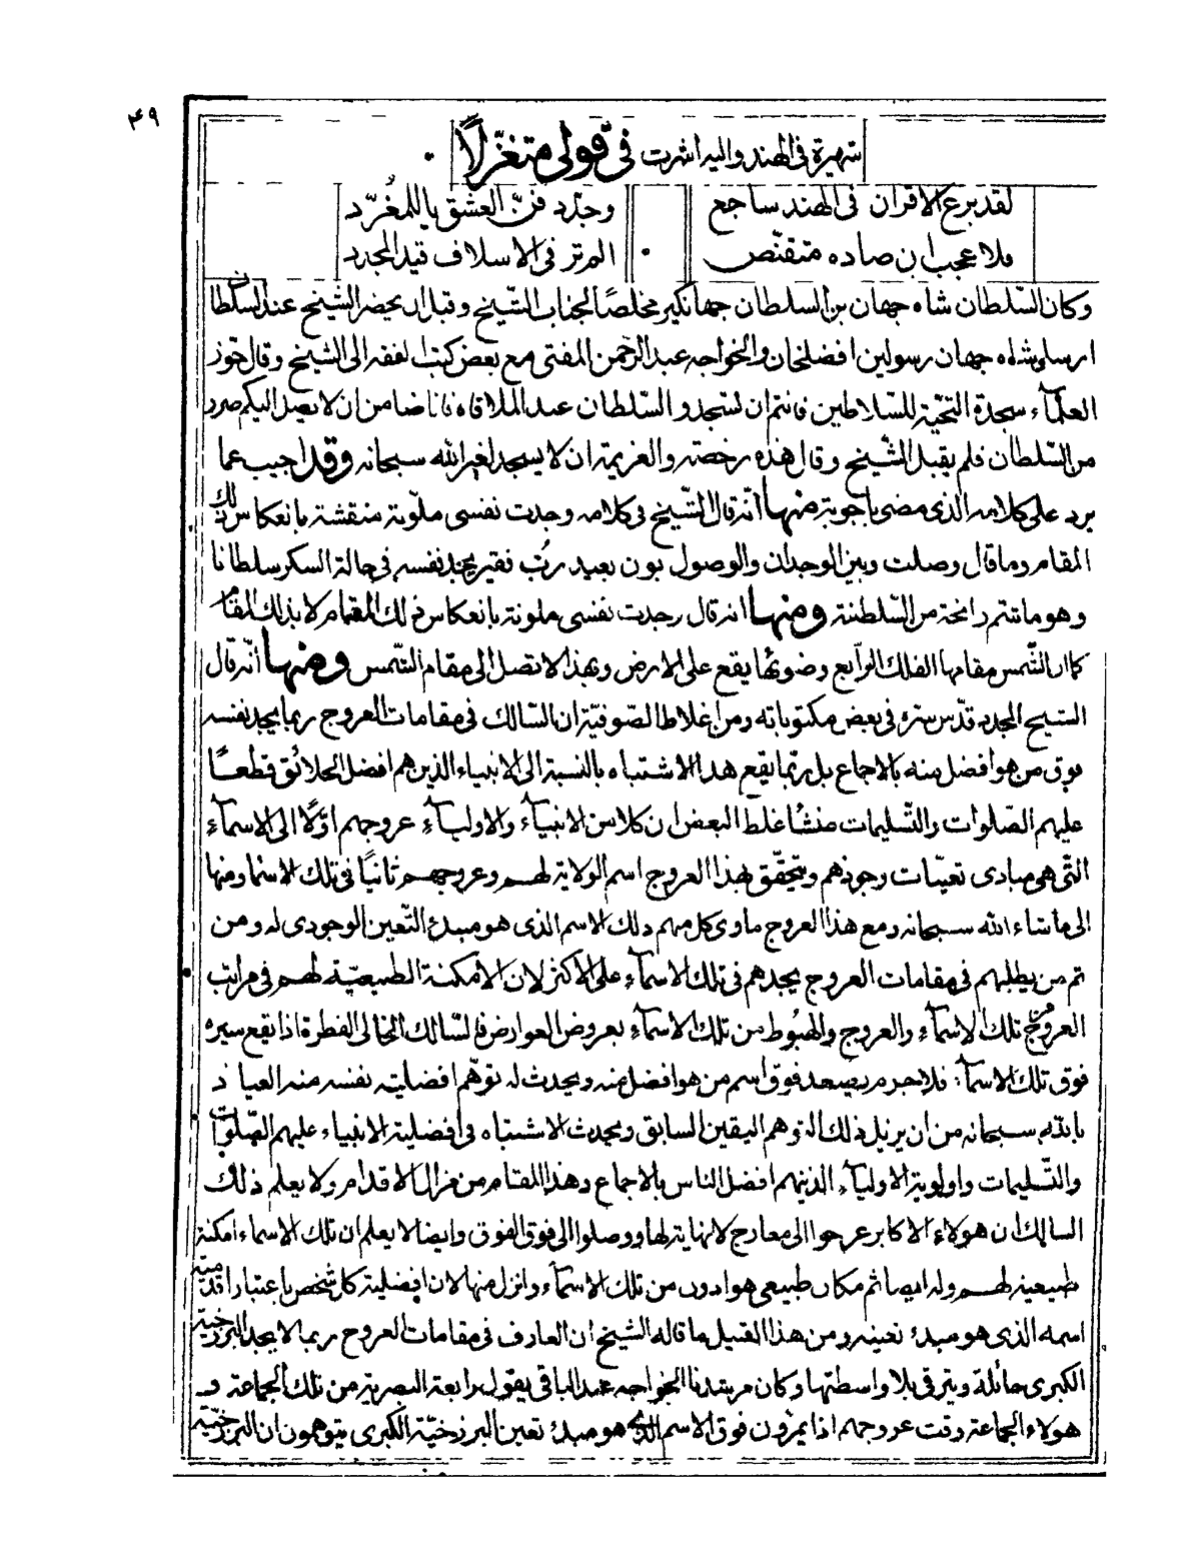 ٤٩
شهيرة فى الهند واليه اشرت فى قولى متغزلًا
لقد برع الاقران فى الهند ساجع وجدّد فنّ العشق ياللمغرّد
فلا عجب ان صاده متقنّص الم تر فى الاسلاف قيد المجدد
وكان السّلطان شاه جهان بن السلطان جهانكير مخلصًا لجناب الشّيخ وقبل ان يحضر الشيخ عند السلطان
ارسل شاه جهان رسولين افضلخان والخواجه عبد الرحمن المفتى مع بعض كتب الفقه الى الشيخ وقال جوز
العلمآء سجدة التحيّة للسّلاطين فانتم ان تسجدو السّلطان عند الملاقاه فانا ضامن ان لا يصل اليكم ضرر
من السّلطان فلم يقبل الشّيخ وقال هذه رخصته والعزيمة ان لا يسجد لغير الله سبحانه وقد اجيب عما
يرد على كلامه الذى مضى باجوبة منها انّه قال الشّيخ فى كلامه وجدت نفسى ملوّنة منقشة بانعكاس ذلك
المقام وما قال وصلت وبين الوجدان والوصول بون بعيد ربّ فقير يجد نفسه فى حالة السكر سلطانا
وهو ما شتم رائحة من السّلطنة ومنها انه قال وجدت نفسى ملونة بانعكاس ذلك المقام لا بذلك المقام
كما ان الشّمس مقامها الفلك الرّابع وضوئها يقع على الارض وبهذا لا تصل الى مقام الشّمس ومنها انّه قال
الشيخ المجدد قدّس سره فى بعض مكتوباته ومن اغلاط الصّوفيّة ان السّالك فى مقامات العروج ربما يجد نفسه
فوق من هو افضل منه بالاجماع بل ربّما يقع هذا الاشتباه بالنسبة الى الانبياء الذين هم افضل الخلائق قطعًا
عليهم الصّلوات والتّسليمات منشأ غلط البعض ان كلا من الانبيآء والاوليآء عروجهم اوّلًا الى الاسمآء
التّى هى مبادى تعيّنات وجودهم ويتحقّق بهذا العروج اسم الولاية لهم وعروجهم ثانيًا فى تلك الاسما ومنها
الى ما شاء الله سبحانه ومع هذا العروج ماوى كل منهم ذلك الاسم الذى هو مبدء التّعين الوجودى له ومن
ثم من يطلبهم فى مقامات العروج يجدهم فى تلك الاسمآء على الاكثر لان الامكنة الطبيعيّة لهم فى مراتب
العروج تلك الاسمآء والعروج والهبوط من تلك الاسمآء بعروض العوارض فالسّالك العالى الفطرة اذا يقع سيره
فوق تلك الاسمآء فلا جرم يصعد فوق اسم من هو افضل منه ويحدث له توهّم افضليته نفسه منه العياذ
بالله سبحانه من ان يزيل ذلك التوهم اليقين السابق ويحدث الاشتباه فى افضلية الانبياء عليهم الصّلوات
والتّسليمات واولوية الاوليآء الذينهم افضل الناس بالاجماع وهذا المقام من مزال الاقدام ولا يعلم ذلك
السالك ان هولاء الاكابر عرجوا الى معارج لا نهاية لها ووصلوا الى فوق الفوق وايضا لا يعلم ان تلك الاسماء امكنة
طبيعية لهم وله ايضا ثم مكان طبيعى هو ادون من تلك الاسمآء وانزل منها لان افضلية كل شخص باعتبار اقدميّة
اسمه الذى هو مبدء تعينه ومن هذا القبيل ما قاله الشيخ ان العارف فى مقامات العروج ربما لا يجد البرزخية
الكبرى حائلة ويترقى بلا واسطتها وكان مرشدنا الخواجه عبد الباقى يقول رابعة البصرية من تلك الجماعة و
هولاء الجماعة وقت عروجهم اذا يمرّون فوق الاسم الذى هو مبدء تعين البرزخيّة الكبرى يتوهمون ان البرزخيّة